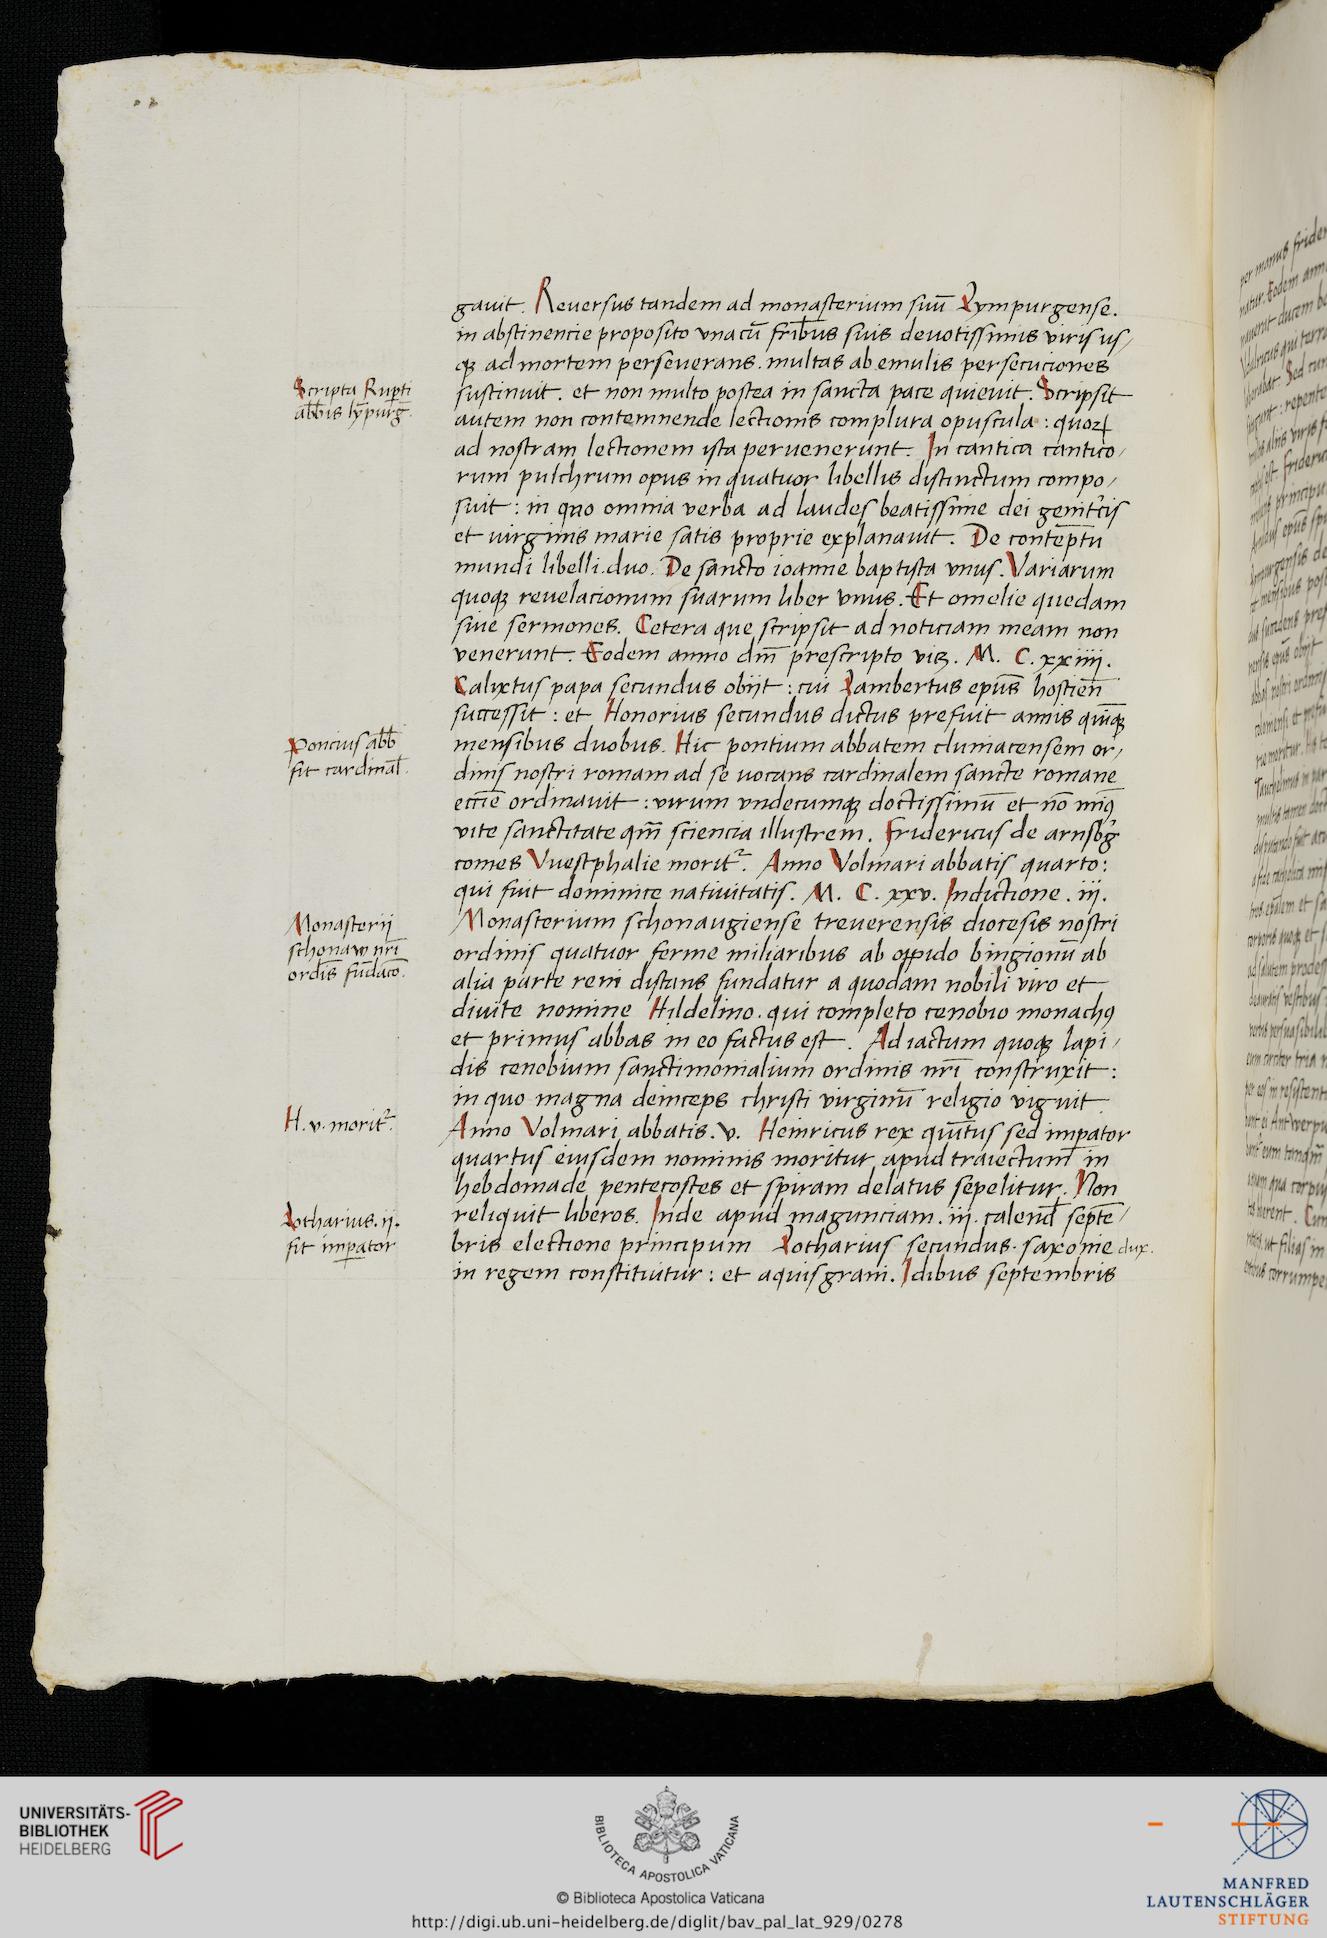 gauit. Reuersus tandem ad monasterium suū Lympurgense.
in abstinencie proposito vnacū frībus suis deuotissimis viris us/
qꝫ ad mortem perseuerans. multas ab emulis persecuciones
Scripta Rupti
abbīs lȳpurg̅.
sustinuit. et non multo postea in sancta pace quieuit. Scripsit
autem non contemnende lectionis complura opuscula : quoꝝ
ad nostram lectionem ista peruenerunt. In cantica cantico/
rum pulchrum opus in quatuor libellis distinctum compo/
suit : in quo omnia verba ad laudes beatissime dei genitͥcis
et uirginis marie satis proprie explanauit. De contēptu
mundi libelli. duo. De sancto ioanne baptista vnus. Variarum
quoqꝫ reuelacionum suarum liber vnus. Et omelie quedam
siue sermones. Cetera que scripsit ad noticiam meam non
venerunt. Eodem anno dn̄i prescripto viꝫ. M. C. xxiiii.
Calixtus papa secundus obijt : cui Lambertus epūs hostien̄
successit : et Honorius secundus dictus prefuit annis quīqꝫ
Poncius abb̄
fit cardinal̄.
mensibus duobus. Hic pontium abbatem cluniacensem or/
dinis nostri romam ad se uocans cardinalem sancte romane
ecc̄ie ordinauit : virum vndecumqꝫ doctissimū et nō minꝰ
vite sanctitate qm̄ sciencia illustrem. Fridericus de arnsb̓g
comes Vuestphalie moritᷣ. Anno Volmari abbatis quarto:
qui fuit dominice natiuitatis. M. C. xxv. Indictione. iii.
Monasterij
schonaw nr̄i
ordīs fūdacō.
Monasterium schonaugiense treuerensis diocesis nostri
ordinis quatuor ferme miliaribus ab oppido bingionū ab
alia parte reni distans fundatur a quodam nobili viro et
diuite nomine Hildelino. qui completo cenobio monachꝰ
et primus abbas in eo factus est. Ad iactum quoqꝫ lapi/
dis cenobium sanctimonialium ordinis nr̄i construxit :
in quo magna deinceps christi virginū religio viguit
H. v. moritᷣ.
Anno Volmari abbatis. v. Heinricus rex quītus sed imꝑator
quartus eiusdem nominis moritur apud traiectum in
hebdomade pentecostes et spiram delatus sepelitur. Non
Lotharius. ij.
fit imꝑator
reliquit liberos. Inde apud magunciam. iij. calend̄ septē/
bris electione principum Lotharius secundus. saxonie dux.
in regem constituitur : et aquisgrani. Idibus septembris
UNIVERSITÄTS-
BIBLIOTHEK
HEIDELBERG
BIBLIOTECA APOSTOLICA VATICANA
© Biblioteca Apostolica Vaticana
http://digi.ub.uni-heidelberg.de/diglit/bav_pal_lat_929/0278
MANFRED
LAUTENSCHLÄGER
STIFTUNG